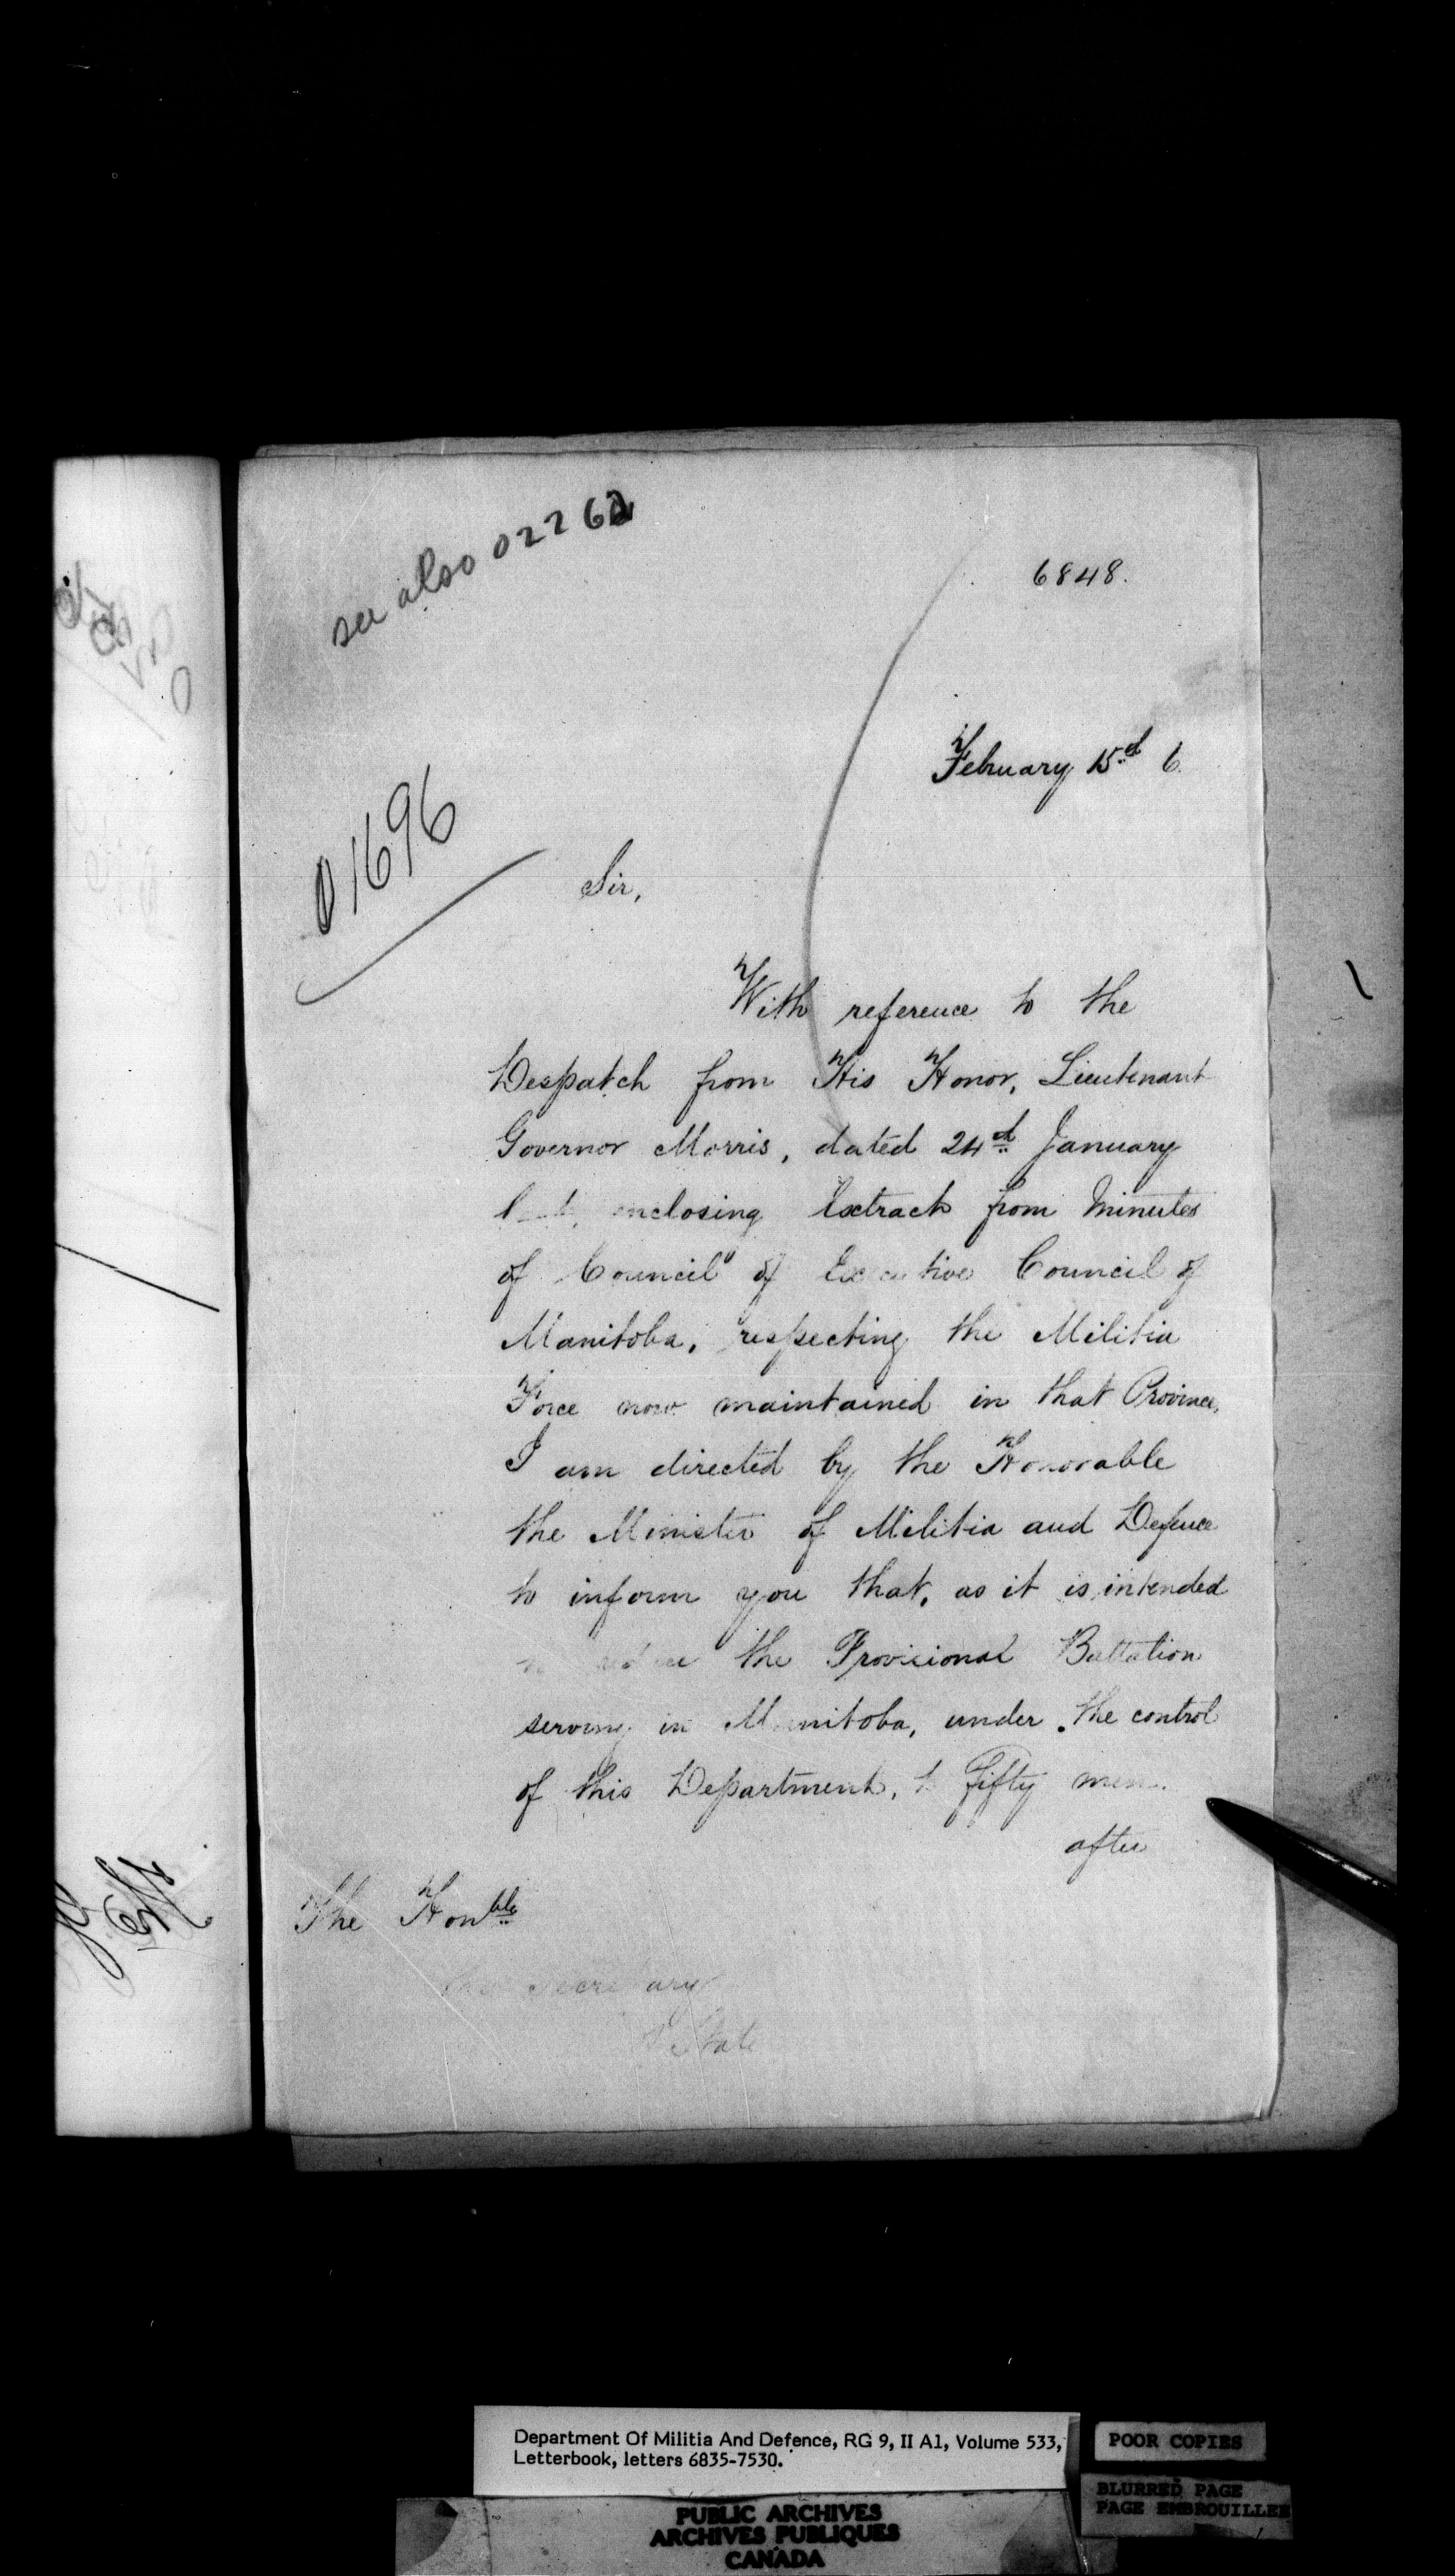 see also 02262
6848.
February 15d 6.
01696
Sir,
With reference to the
Despatch from His Honor, Lieutenant
Governor Morris, dated 24d January
enclosing Extract from Minutes
of Council of Executive Council of
Manitoba, respecting the Militia
Force now maintained in that Province,
I am directed by the Honorable
the Minister of Militia and Defence
to inform you that, as it is intended
the Provisional Battalion
serving in Manitoba, under the control
of this Department, to fifty men.
after
The Honble
The Secretary
of State
Department Of Militia And Defence, RG 9, II A1, Volume 533,
Letterbook, letters 6835-7530.
POOR COPIES
BLURRED PAGE
PAGE EMBROUILLEE
PUBLIC ARCHIVES
ARCHIVES PUBLIQUES
CANADA